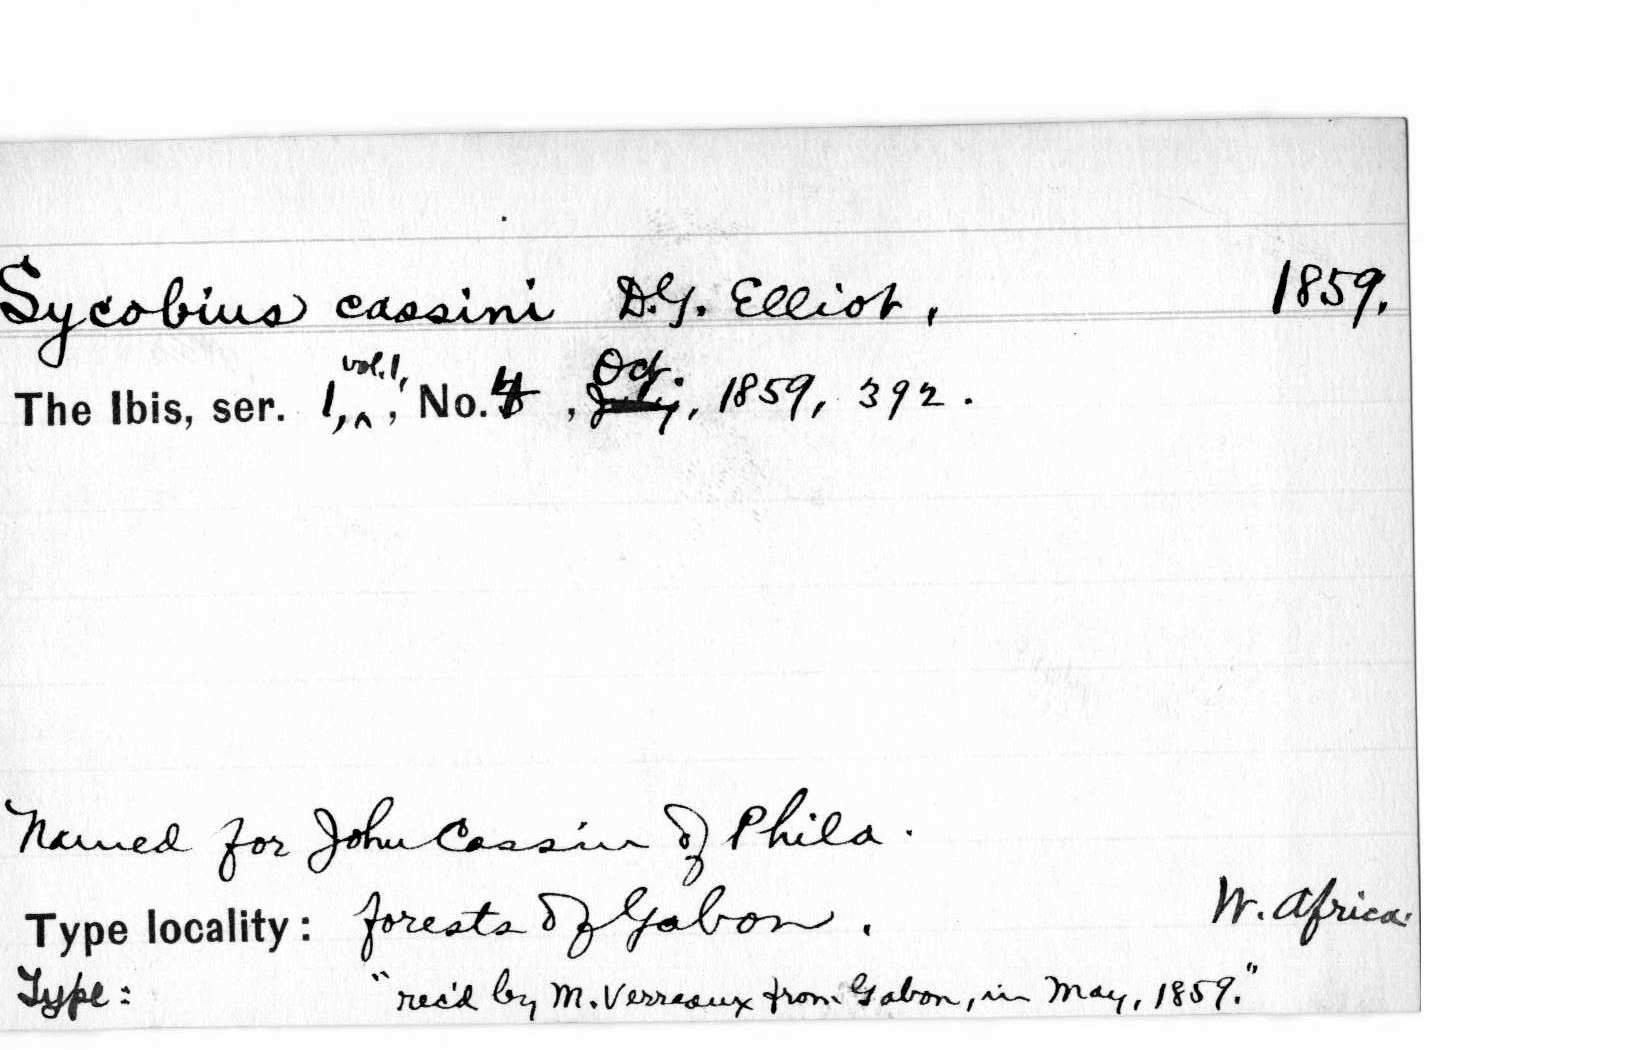 Sycobius cassini D.G. Elliot, 1859.
The Ibis, ser. 1, vol. 1, , No. 4 , Oct. July, 1859, 392.
Named for John Cassin of Phila.
Type locality: forests of Gabon. W. Africa.
Type: "rec'd by M. Verreaux from Gabon, in May, 1859."